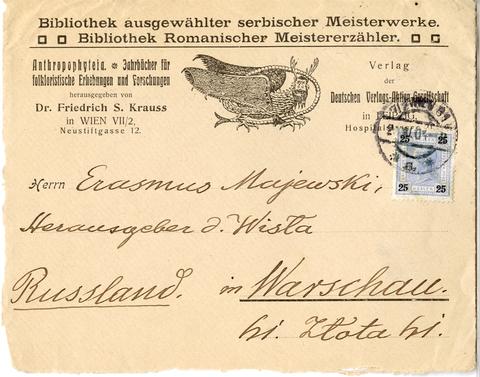 Bibliothek ausgewählter serbischer Meisterwerke.
Bibliothek Romanischer Meistererzähler.
Anthropophyteia. * Jahrbücher für
folkloristische Erhebungen und Forschungen
herausgegeben von
Dr. Friedrich S. Krauss
in WIEN VII/2,
Neustiftgasse 12.
Verlag
der
Deutschen Verlags-Aktien-Gesellschaft
in
Hospital
25 25
25 25
Herrn Erasmus Majewski,
Herausgeber d. Wisła
Russland. in Warschau.
Złota